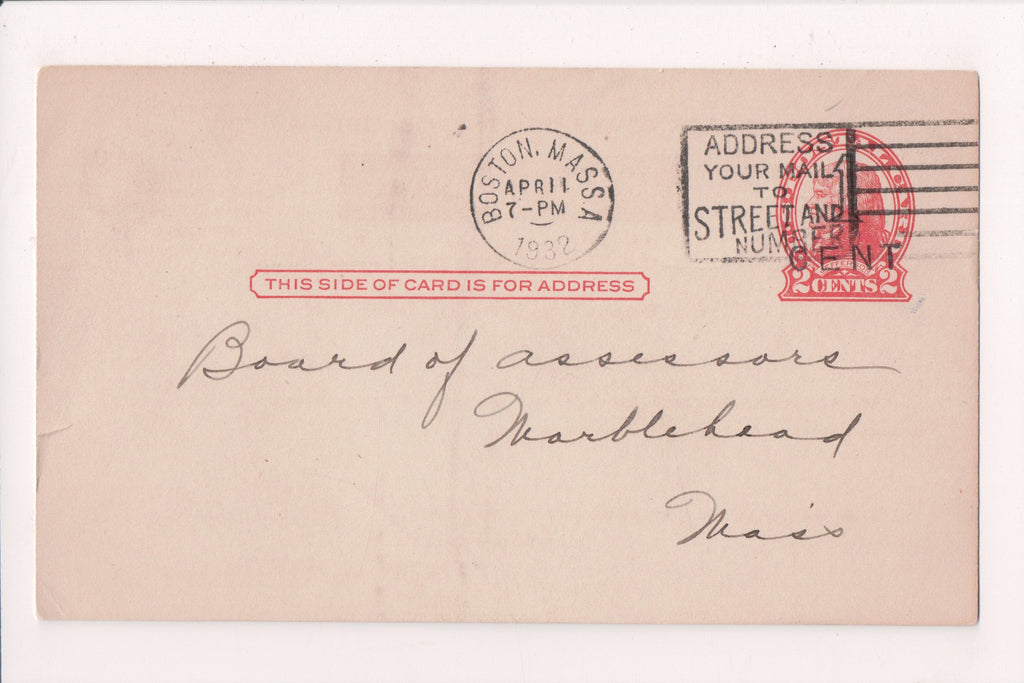 BOSTON, MASS.
APR 11
7-PM
1932
A
ADDRESS
YOUR MAIL
TO
STREET AND
NUMBER
1
CENT
JEFFERSON
2 CENTS 2
THIS SIDE OF CARD IS FOR ADDRESS
Board of assessors
Marblehead
Mass